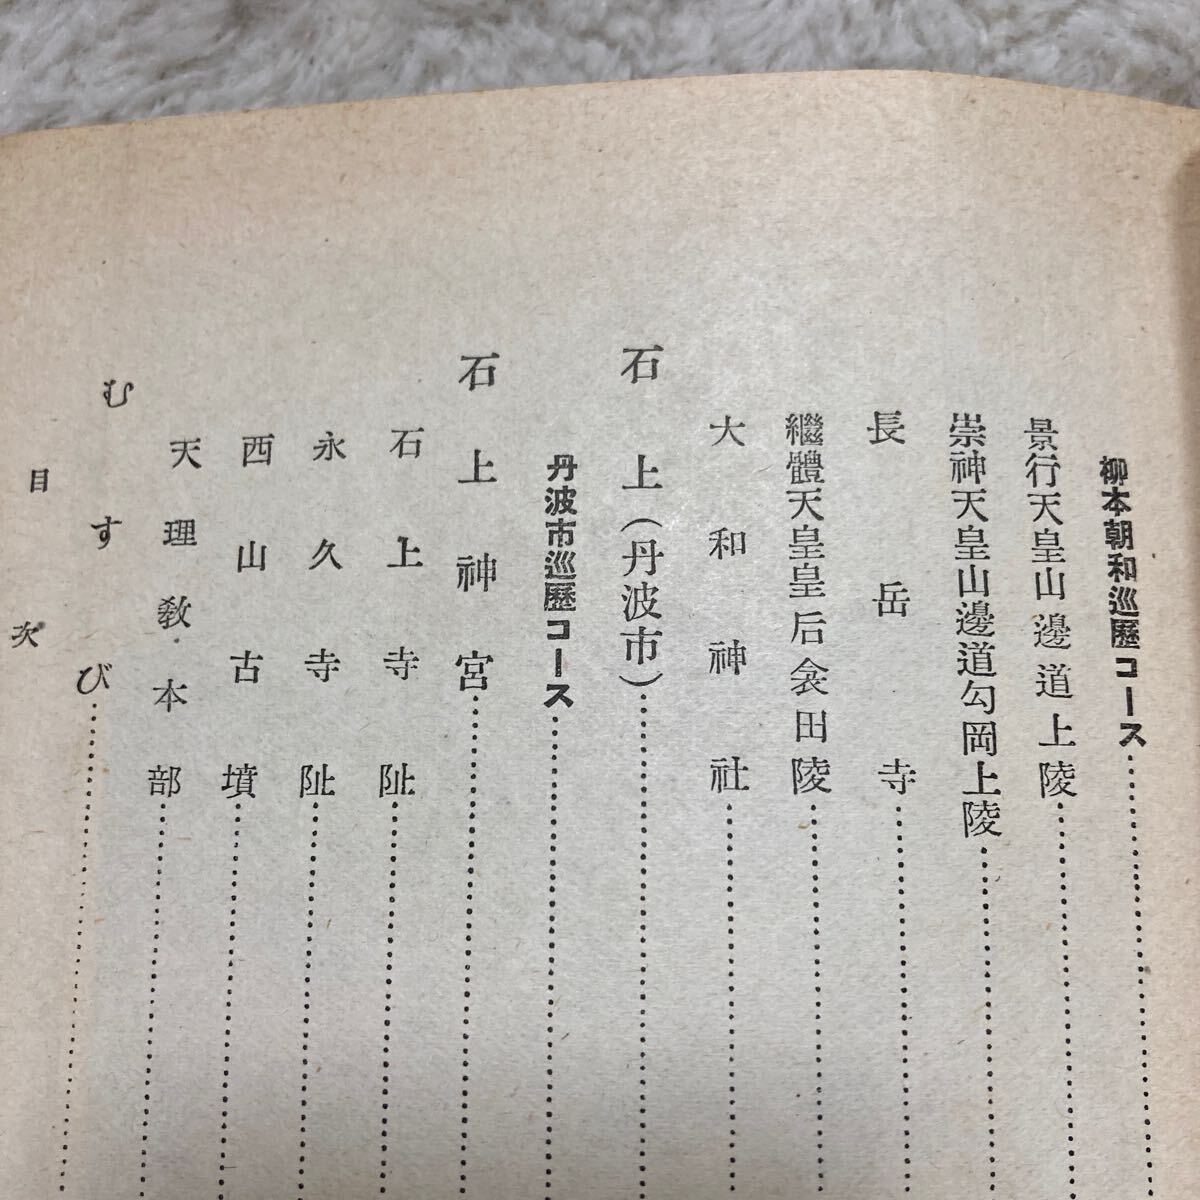 柳本朝和巡歷コース
景行天皇山邊道上陵
崇神天皇山邊道勾岡上陵
長岳寺
繼體天皇皇后衾田陵
大和神社
石上（丹波市）
丹波市巡歷コース
石上神宮
石上寺阯
永久寺阯
西山古墳
天理敎本部
むすび
目次